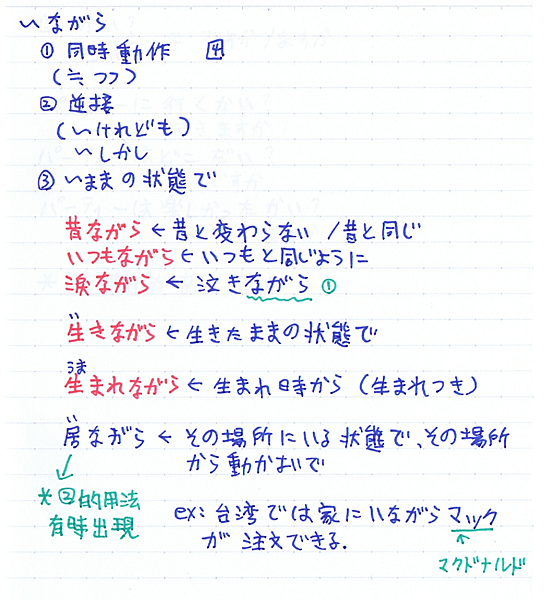 〜ながら
① 同時動作 四
(≒つつ)
② 逆接
(〜けれども)
〜しかし
③ 〜ままの状態で
昔ながら ← 昔と変わらない / 昔と同じ
いつもながら ← いつもと同じように
涙ながら ← 泣きながら ①
い
生きながら ← 生きたままの状態で
うま
生まれながら ← 生まれ日時から (生まれつき)
い
居ながら ← その場所にいる状態で、その場所
から動かまいで
*②的用法
有時出現
ex: 台湾では家にいながらマック
が注文できる.
マクドナルド